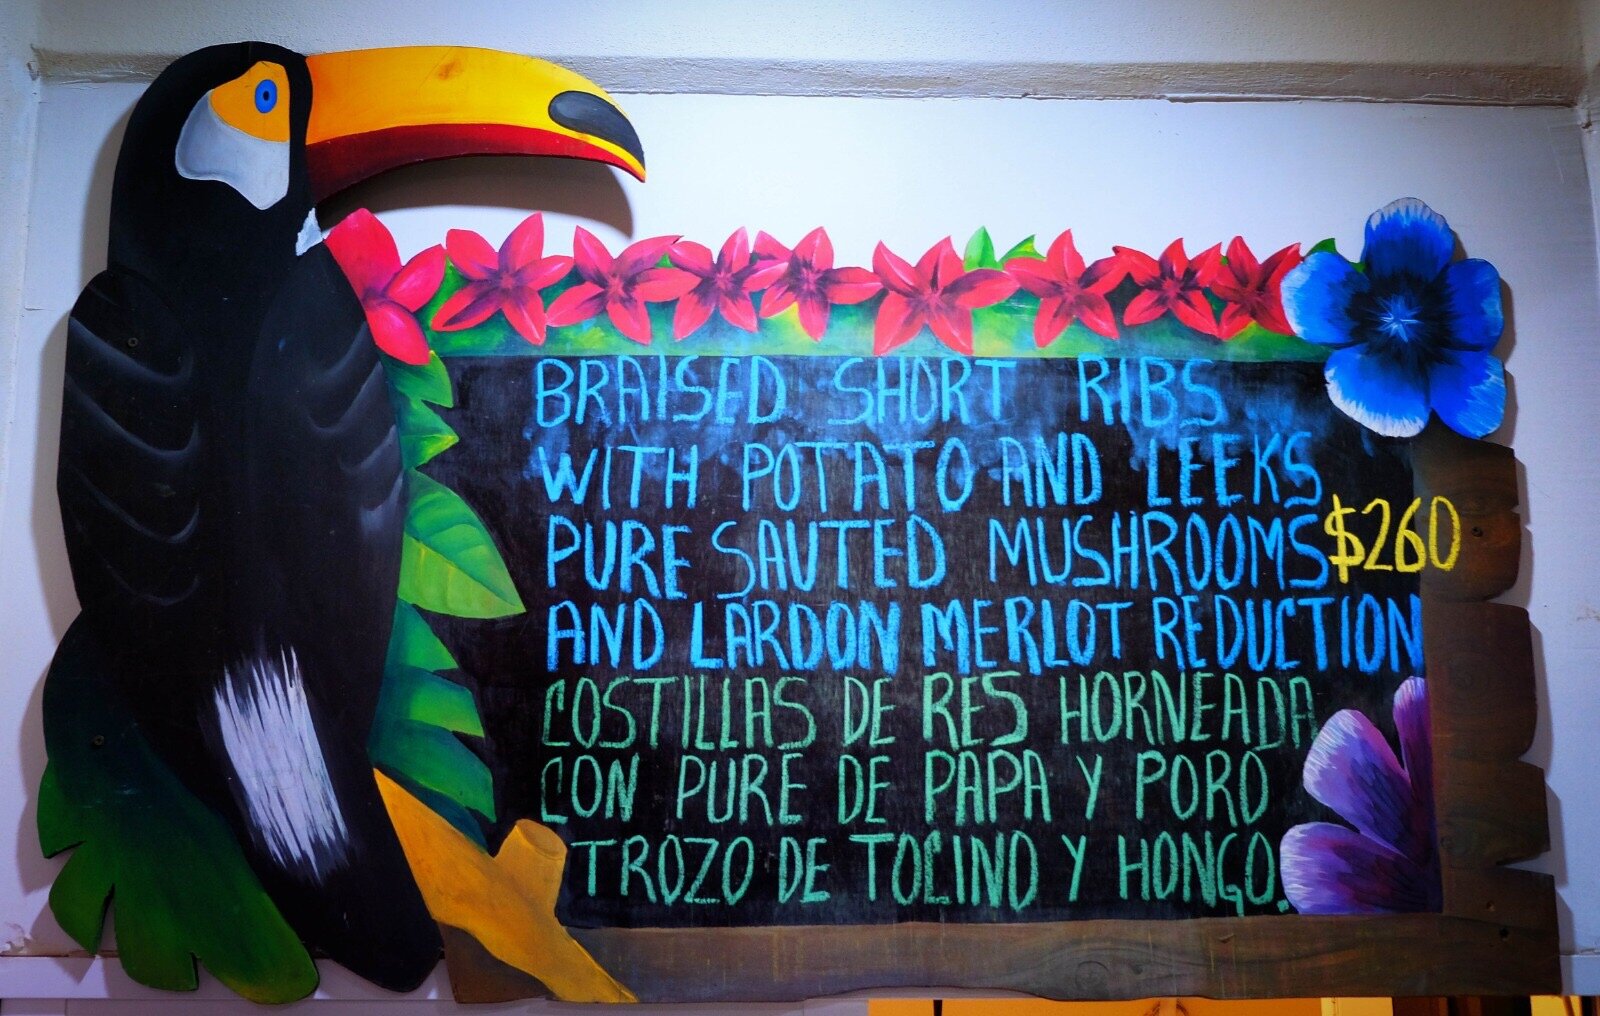 BRAISED SHORT RIBS
WITH POTATO AND LEEKS
PURE SAUTED MUSHROOMS $260
AND LARDON MERLOT REDUCTION
COSTILLAS DE RES HORNEADA
CON PURE DE PAPA Y PORO
TROZO DE TOCINO Y HONGO.